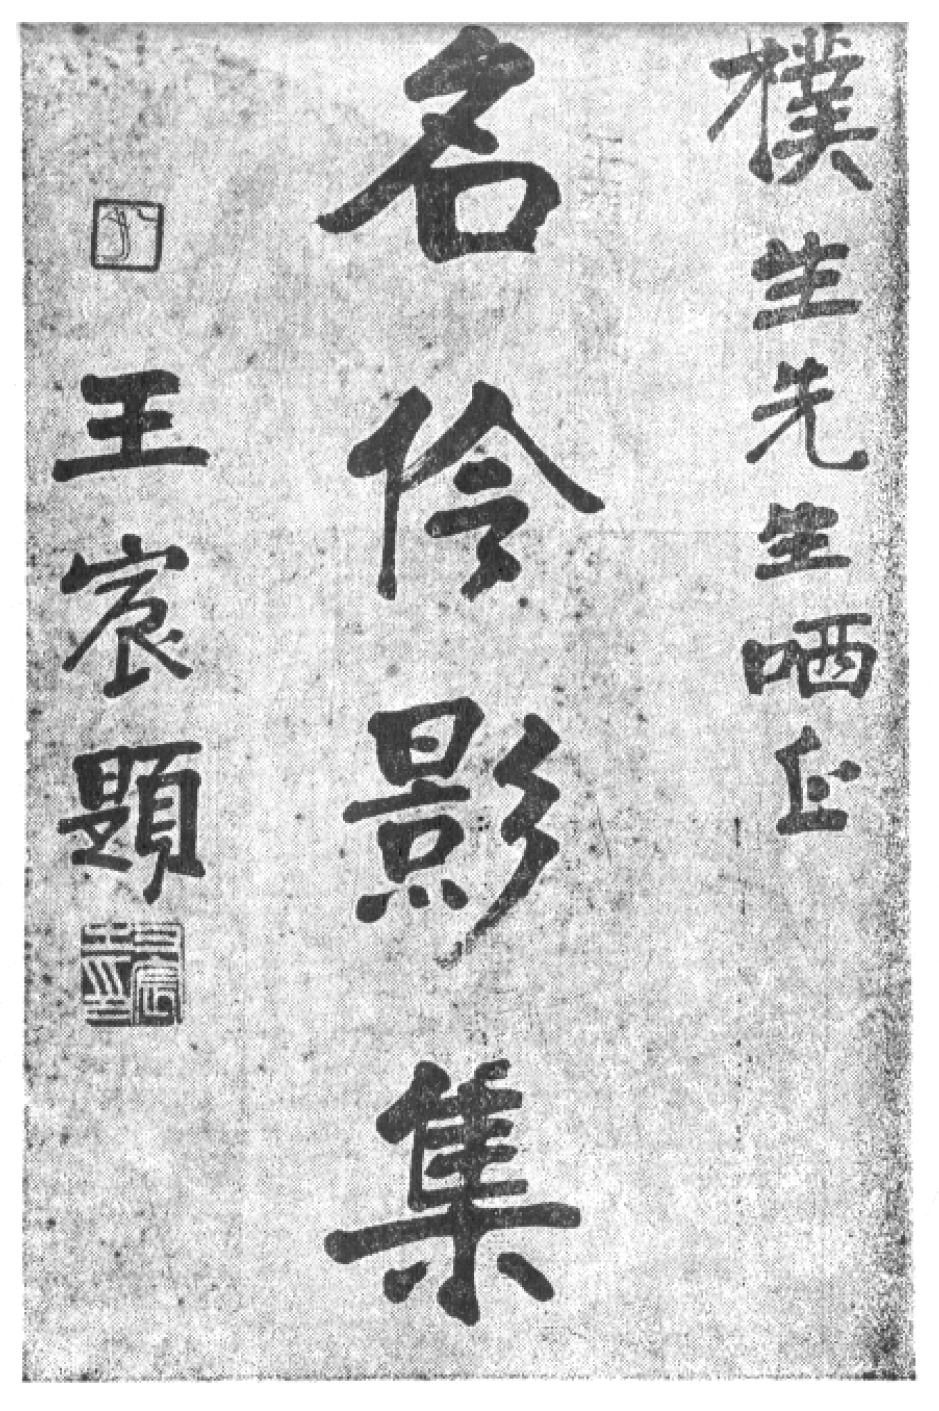 樸生先生哂正
名伶影集
王宸題